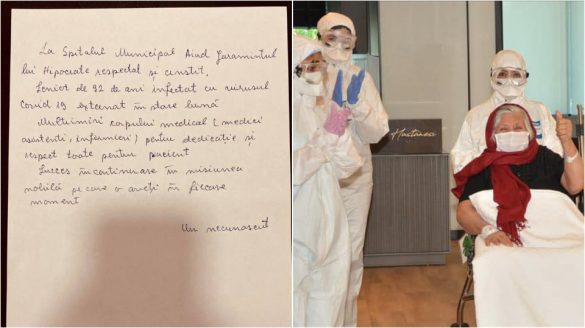 La Spitalul Municipal Aiud Jaramintul
lui Hipocrate respectat și cinstit.
Senior de 92 de ani infectat cu virusul
Covid 19 externat în stare bună
Multumiri corpului medical (medici
asistenti, infermieri) pentru dedicație și
respect toate pentru pacient
Succes în continuare în misiunea
nobilă pe care o aveți în fiecare
moment
Un necunoscut
Hastanesi